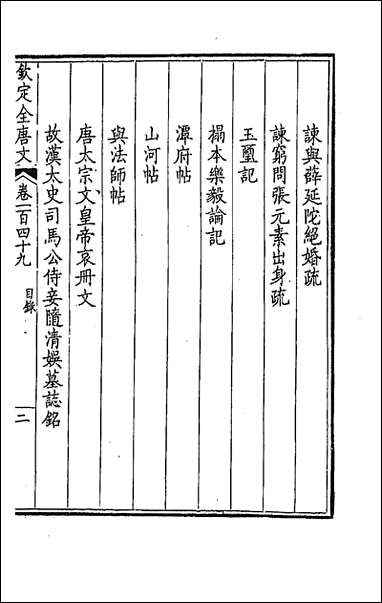 諫與薛延陀絕婚疏
諫窮問張元素出身疏
玉璽記
搨本樂毅論記
潭府帖
山河帖
與法師帖
唐太宗文皇帝哀冊文
故漢太史司馬公侍妾隨清娛墓誌銘
欽定全唐文 卷一百四十九 目錄 二